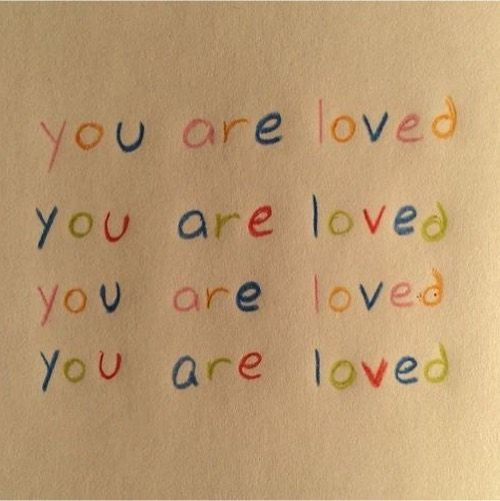 you are loved
you are loved
you are loved
you are loved